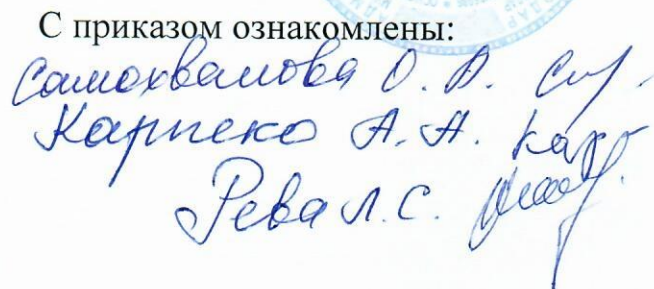 С приказом ознакомлены:
Самохвалова О. А.
Карпеко А. А.
Рева Л. С.